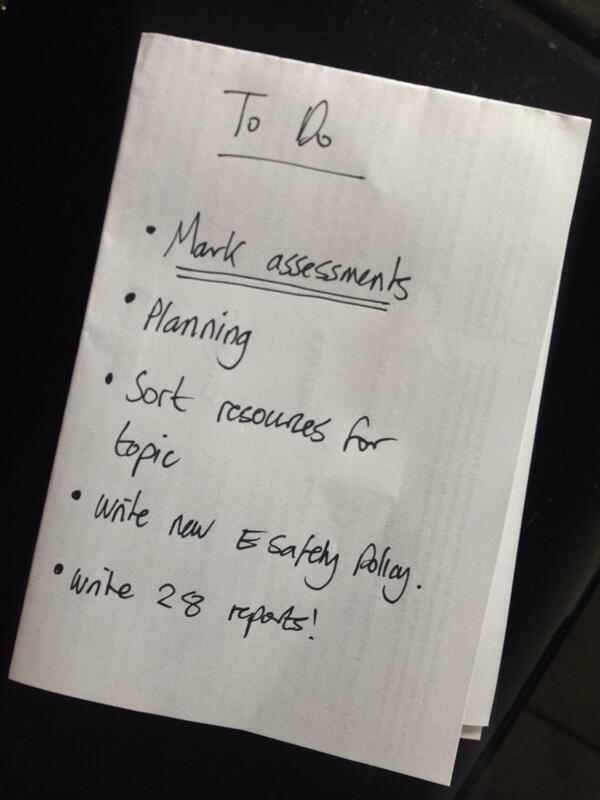 To Do
• Mark assessments
• Planning
• Sort resources for
topic
• Write new E Safety Policy.
• Write 28 reports!